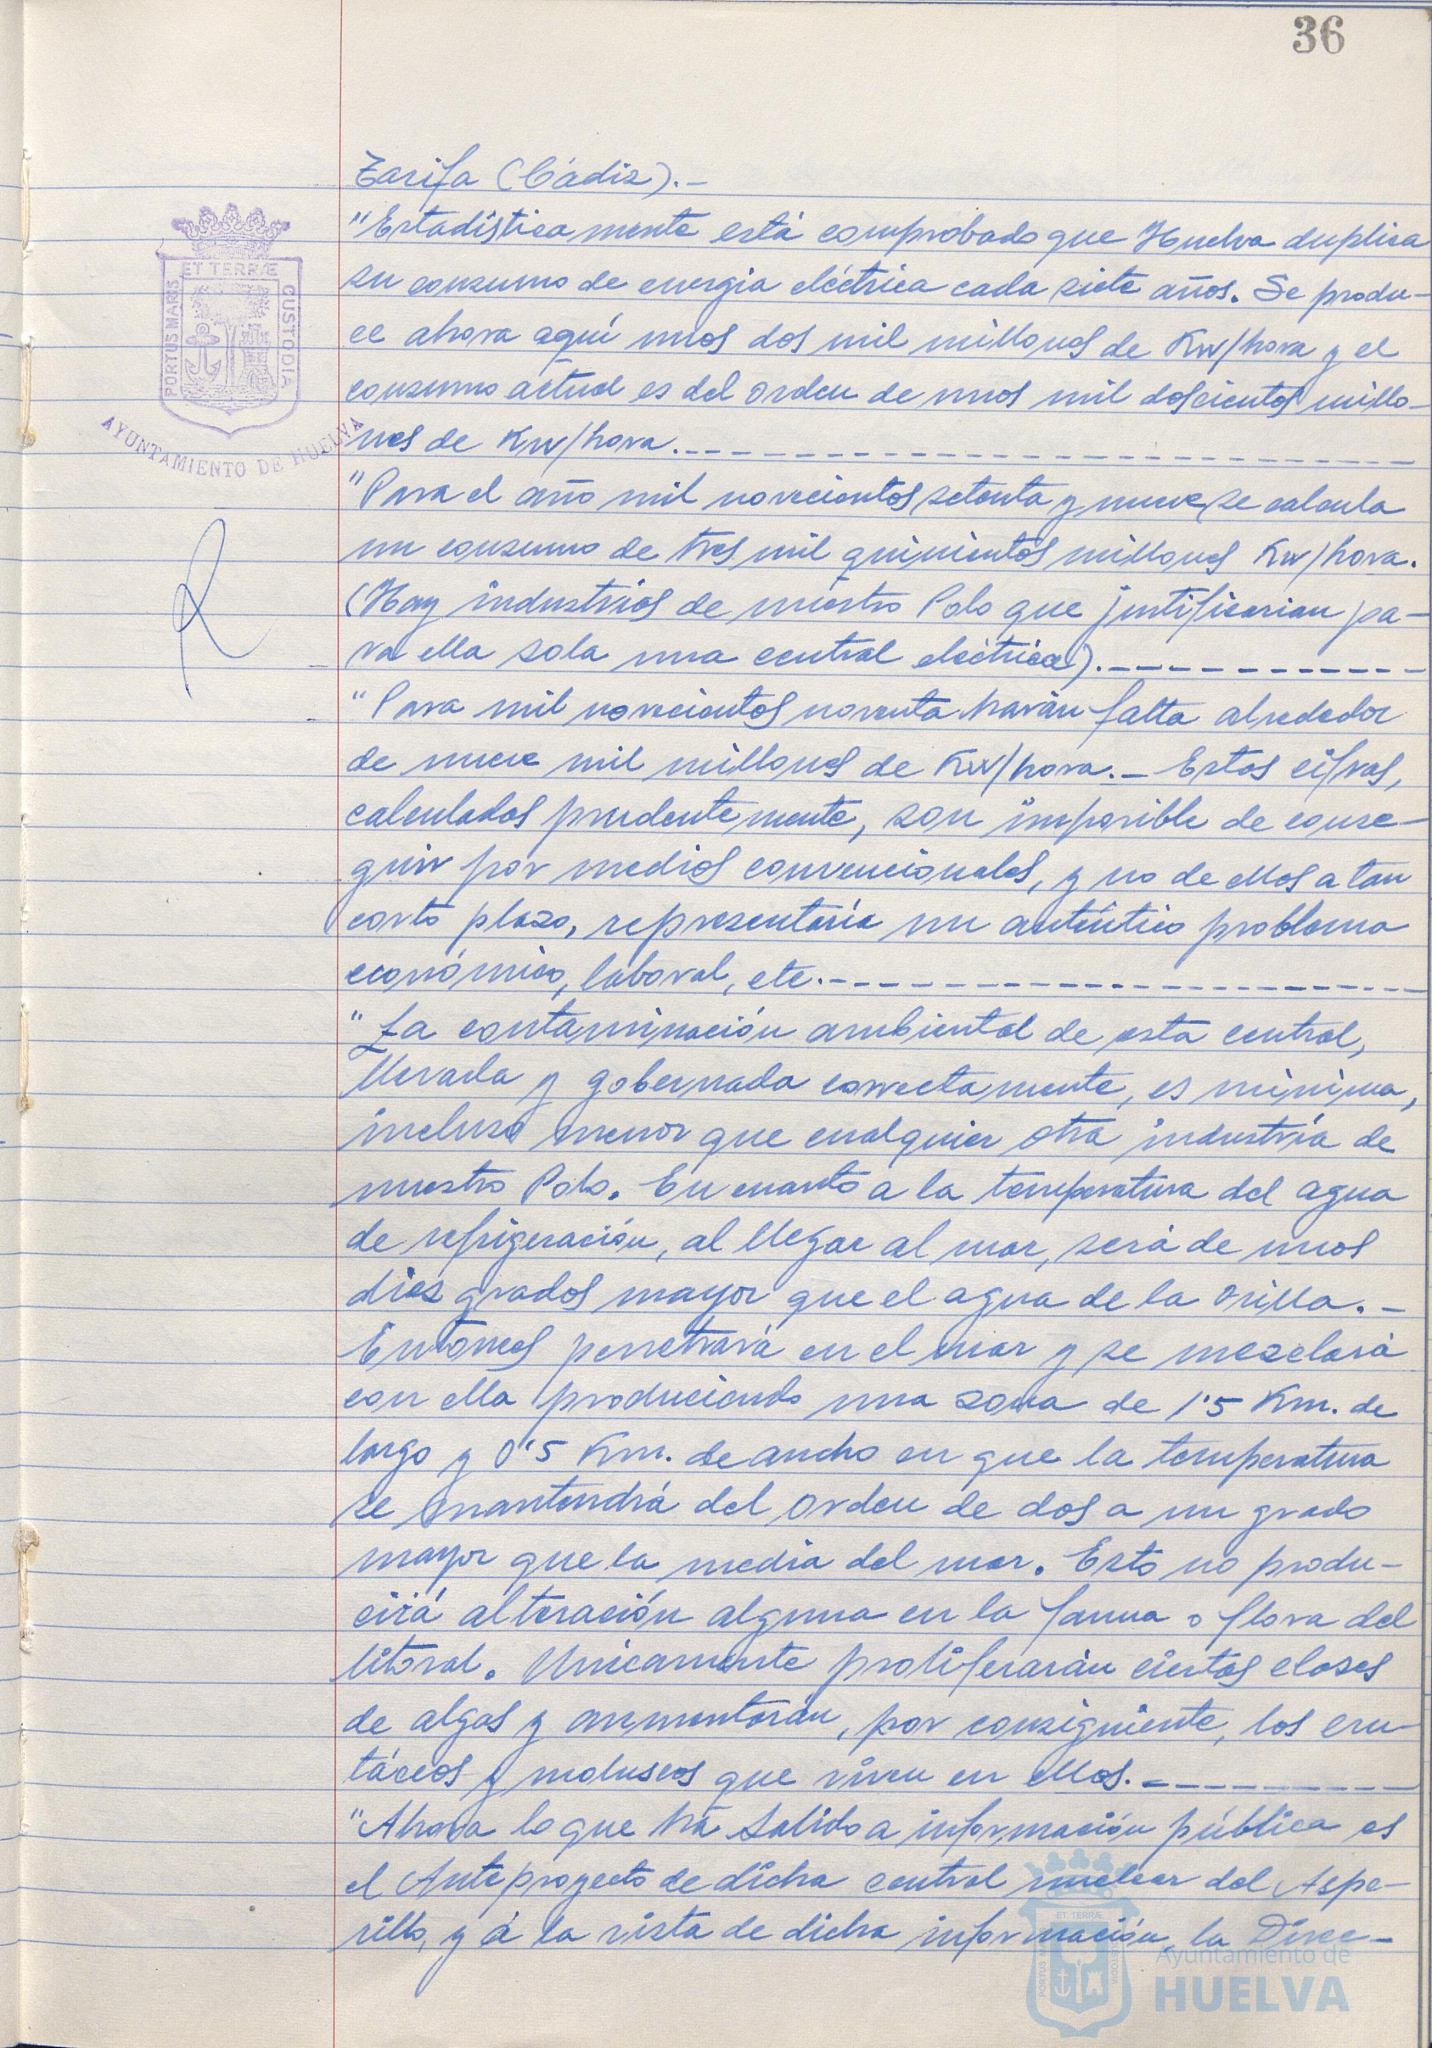 36
Tarifa (Cádiz).-
"Estadísticamente está comprobado que Huelva duplica
su consumo de energia eléctrica cada siete años. Se produ-
ce ahora aquí unos dos mil millones de Kw/hora y el
consumo actual es del orden de unos mil doscientos millo-
nes de Kw/hora.
"Para el año mil novecientos setenta y nueve se calcula
un consumo de tres mil quinientos millones Kw/hora.
(Hay industrias de nuestro Polo que justificarian pa-
ra ella sola una central eléctrica).
"Para mil novecientos noventa harán falta alrededor
de nueve mil millones de Kw/hora.- Estas cifras,
calculadas prudentemente, son imposible de conse-
guir por medios convencionales, y no de ellos a tan
corto plazo, representaría un auténtico problema
económico, laboral, etc.
"La contaminación ambiental de esta central,
llevada y gobernada correctamente, es minima,
incluso menor que cualquier otra industria de
nuestro Polo. En cuanto a la temperatura del agua
de refrigeración, al llegar al mar, será de unos
diez grados mayor que el agua de la orilla.-
Entonces penetrará en el mar y se mezclará
con ella produciendo una zona de 1'5 Km. de
largo y 0'5 Km. de ancho en que la temperatura
se mantendrá del orden de dos a un grado
mayor que la media del mar. Esto no produ-
cirá alteración alguna en la fauna o flora del
litoral. Unicamente proliferarán ciertas clases
de algas y aumentarán, por consiguiente, los cru-
táceos y moluscos que viven en ellas.
"Ahora lo que ha salido a información pública es
el Anteproyecto de dicha central nuclear del Aspe-
rillo, y á la vista de dicha información, la Direc-
PORTUS MARIS ET TERRÆ CUSTODIA
AYUNTAMIENTO DE HUELVA
Ayuntamiento de
HUELVA